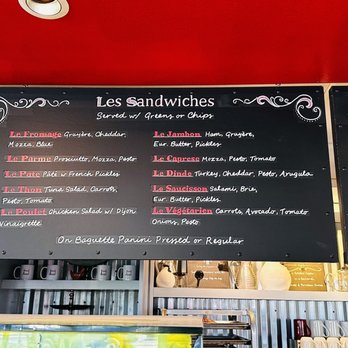 Les Sandwiches
Served w/ Greens or Chips
Le Fromage Gruyère, Cheddar,
Mozza, Blue
Le Parme Prosciutto, Mozza, Pesto
Le Pate Pâté w/ French Pickles
Le Thon Tuna Salad, Carrots,
Pesto, Tomato
Le Poulet Chicken Salad w/ Dijon
Vinaigrette
Le Jambon Ham, Gruyère,
Eur. Butter, Pickles
Le Caprese Mozza, Pesto, Tomato
Le Dinde Turkey, Cheddar, Pesto, Arugula
Le Saucisson Salami, Brie,
Eur. Butter, Pickles
Le Végétarien Carrots, Avocado, Tomato
Onions, Pesto
On Baguette Panini Pressed or Regular